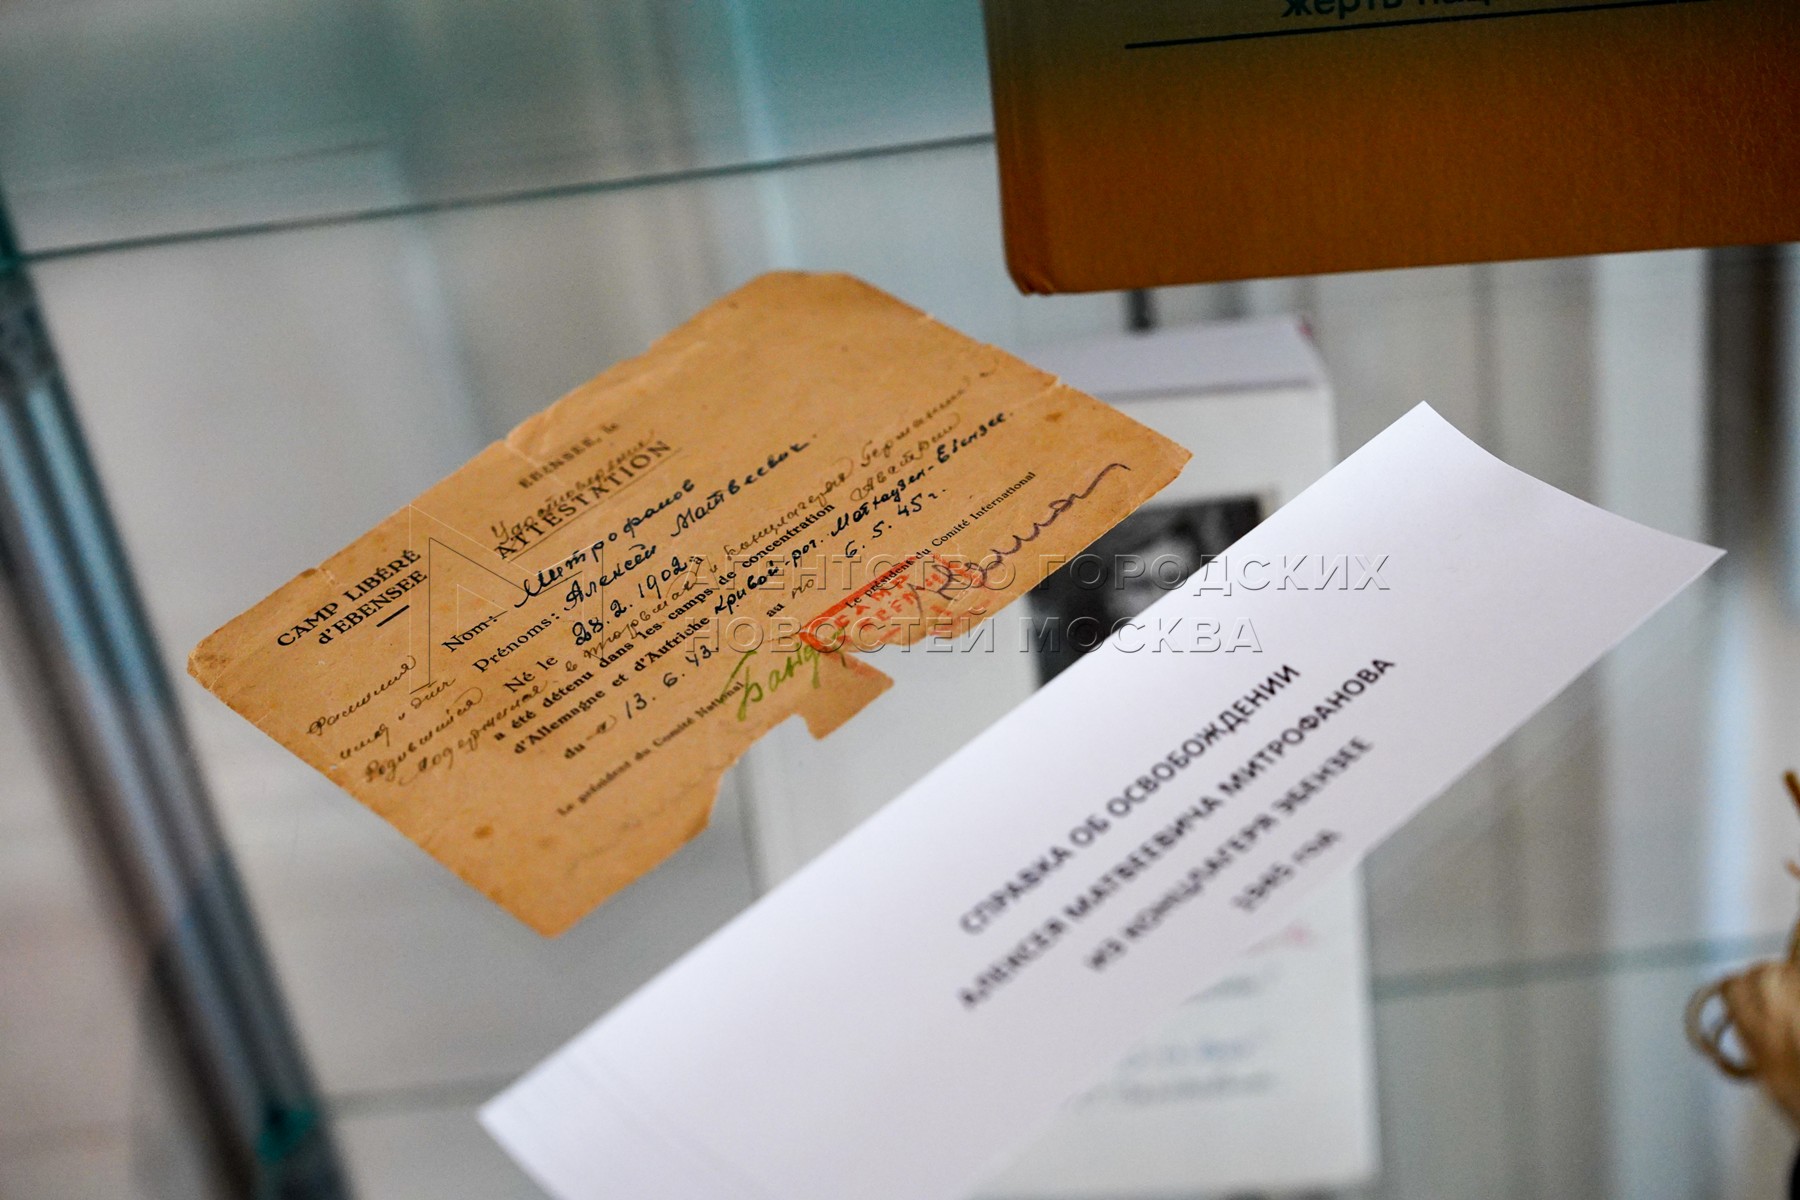 EBENSEE, le
Удостоверение
ATTESTATION
CAMP LIBÉRÉ
d'EBENSEE
Nom: Митрофанов
Фамилия
Prénoms: Алексей Матвеевич.
имя и отч
Né le 28.2.1902. à
Родившийся
a été détenu dans les camps de concentration
концлагерях Германии
d'Allemagne et d'Autriche Кривой-рог. Матхаузен-Ебензее.
du 13. 6. 43. au по 6. 5. 45 г.
Le président du Comité National
Le président du Comité International
CAMP
АГЕНТСТВО ГОРОДСКИХ
НОВОСТЕЙ МОСКВА
СПРАВКА ОБ ОСВОБОЖДЕНИИ
АЛЕКСЕЯ МАТВЕЕВИЧА МИТРОФАНОВА
ИЗ КОНЦЛАГЕРЯ ЭБЕНЗЕЕ
1945 год